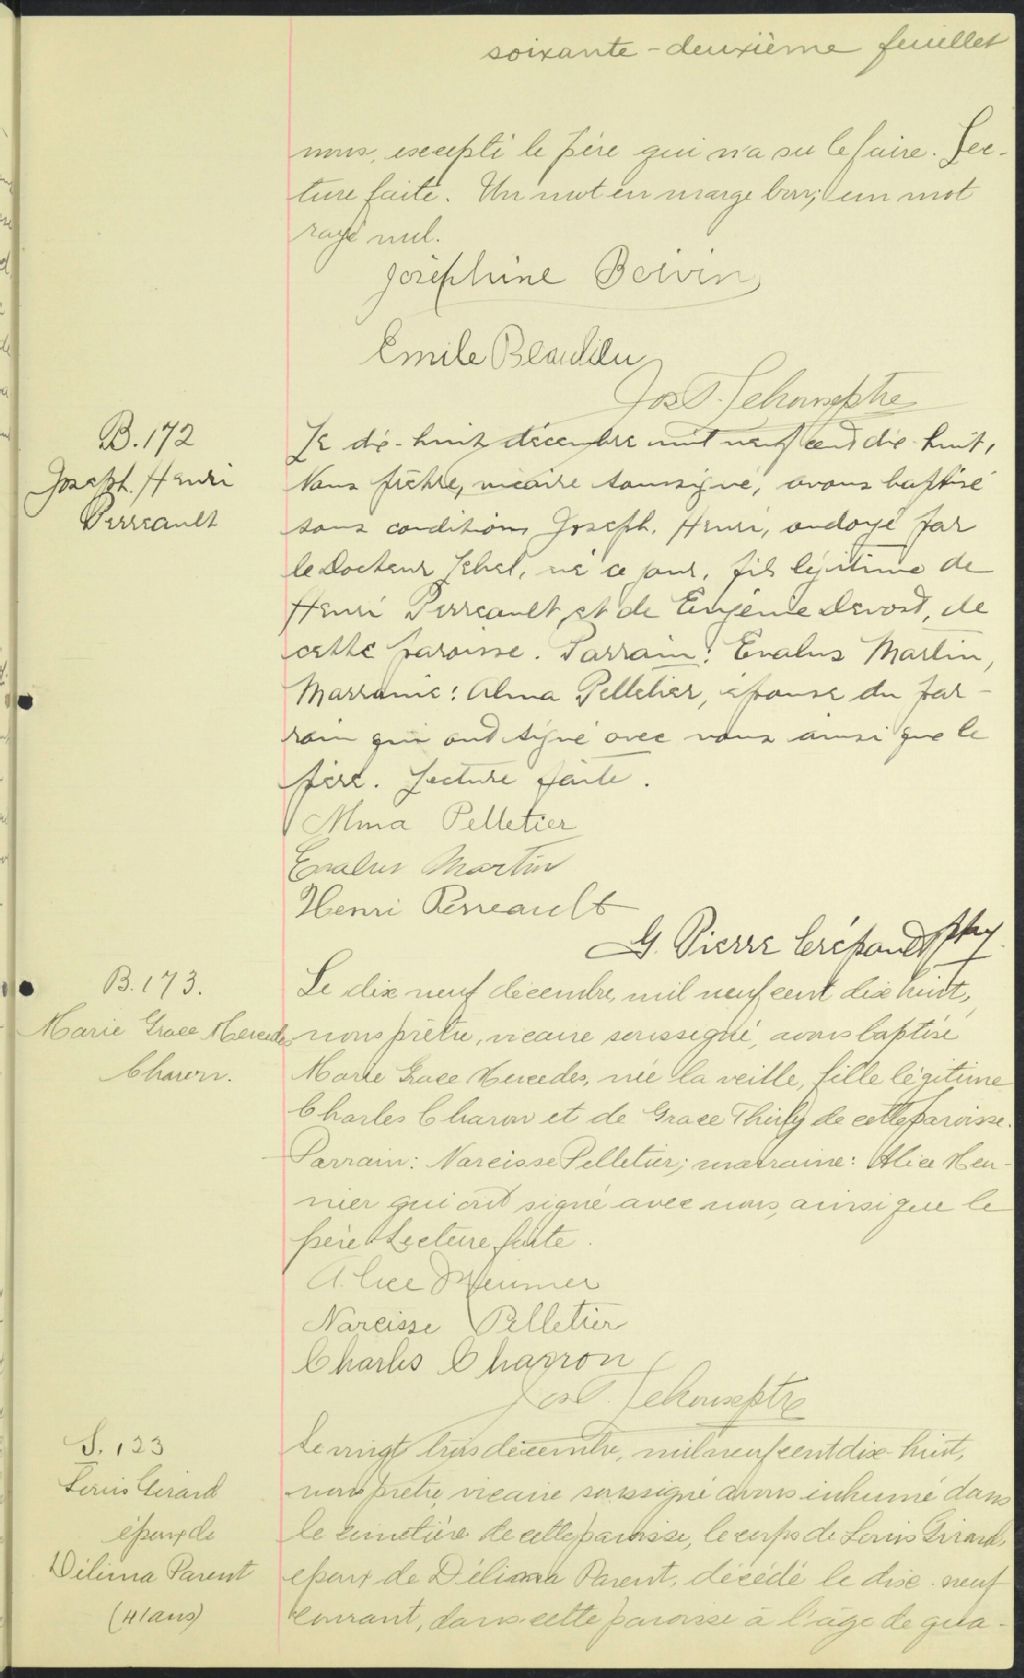 soixante-deuxième feuillet
nous, excepté le père qui n'a su le faire. Lec-
ture faite. Un mot en marge bon; un mot
rayé nul.
Joséphine Boivin
Emile Beaulieu
Jos
B. 172
Joseph. Henri
Perreault
Le dix-huit décembre mil neuf cent dix-huit,
Nous prêtre, vicaire soussigné, avons baptisé
sous conditions Joseph. Henri, ondoyé par
le Docteur Lebel, né ce jour, fils légitime de
Henri Perreault et de Eugénie Devost, de
cette paroisse. Parrain: Evalus Martin,
Marraine: Alma Pelletier, épouse du par-
rain qui ont signé avec nous ainsi que le
père. Lecture faite.
Alma Pelletier
Evalus Martin
Henri Perreault
G. Pierre Crépault
B. 173.
Marie Grace Mercedes
Charon.
Le dix neuf décembre, mil neuf cent dix huit,
nous prêtre, vicaire soussigné, avons baptisé
Marie Grace Mercedes, née la veille, fille légitime
Charles Charon et de Grace de cette paroisse.
Parrain: Narcisse Pelletier; marraine: Alice Meu-
nier qui ont signé avec nous, ainsi que le
père. Lecture faite.
Alice Meunier
Narcisse Pelletier
Charles Charron
Jos
S. 123
Louis Girard
époux de
Délima Parent
(41 ans)
Le vingt trois décembre, mil neuf cent dix-huit,
nous prêtre, vicaire soussigné avons inhumé dans
le cimetière de cette paroisse, le corps de Louis Girard,
époux de Délima Parent, décédé le dix-neuf
courant, dans cette paroisse à l'âge de qua-